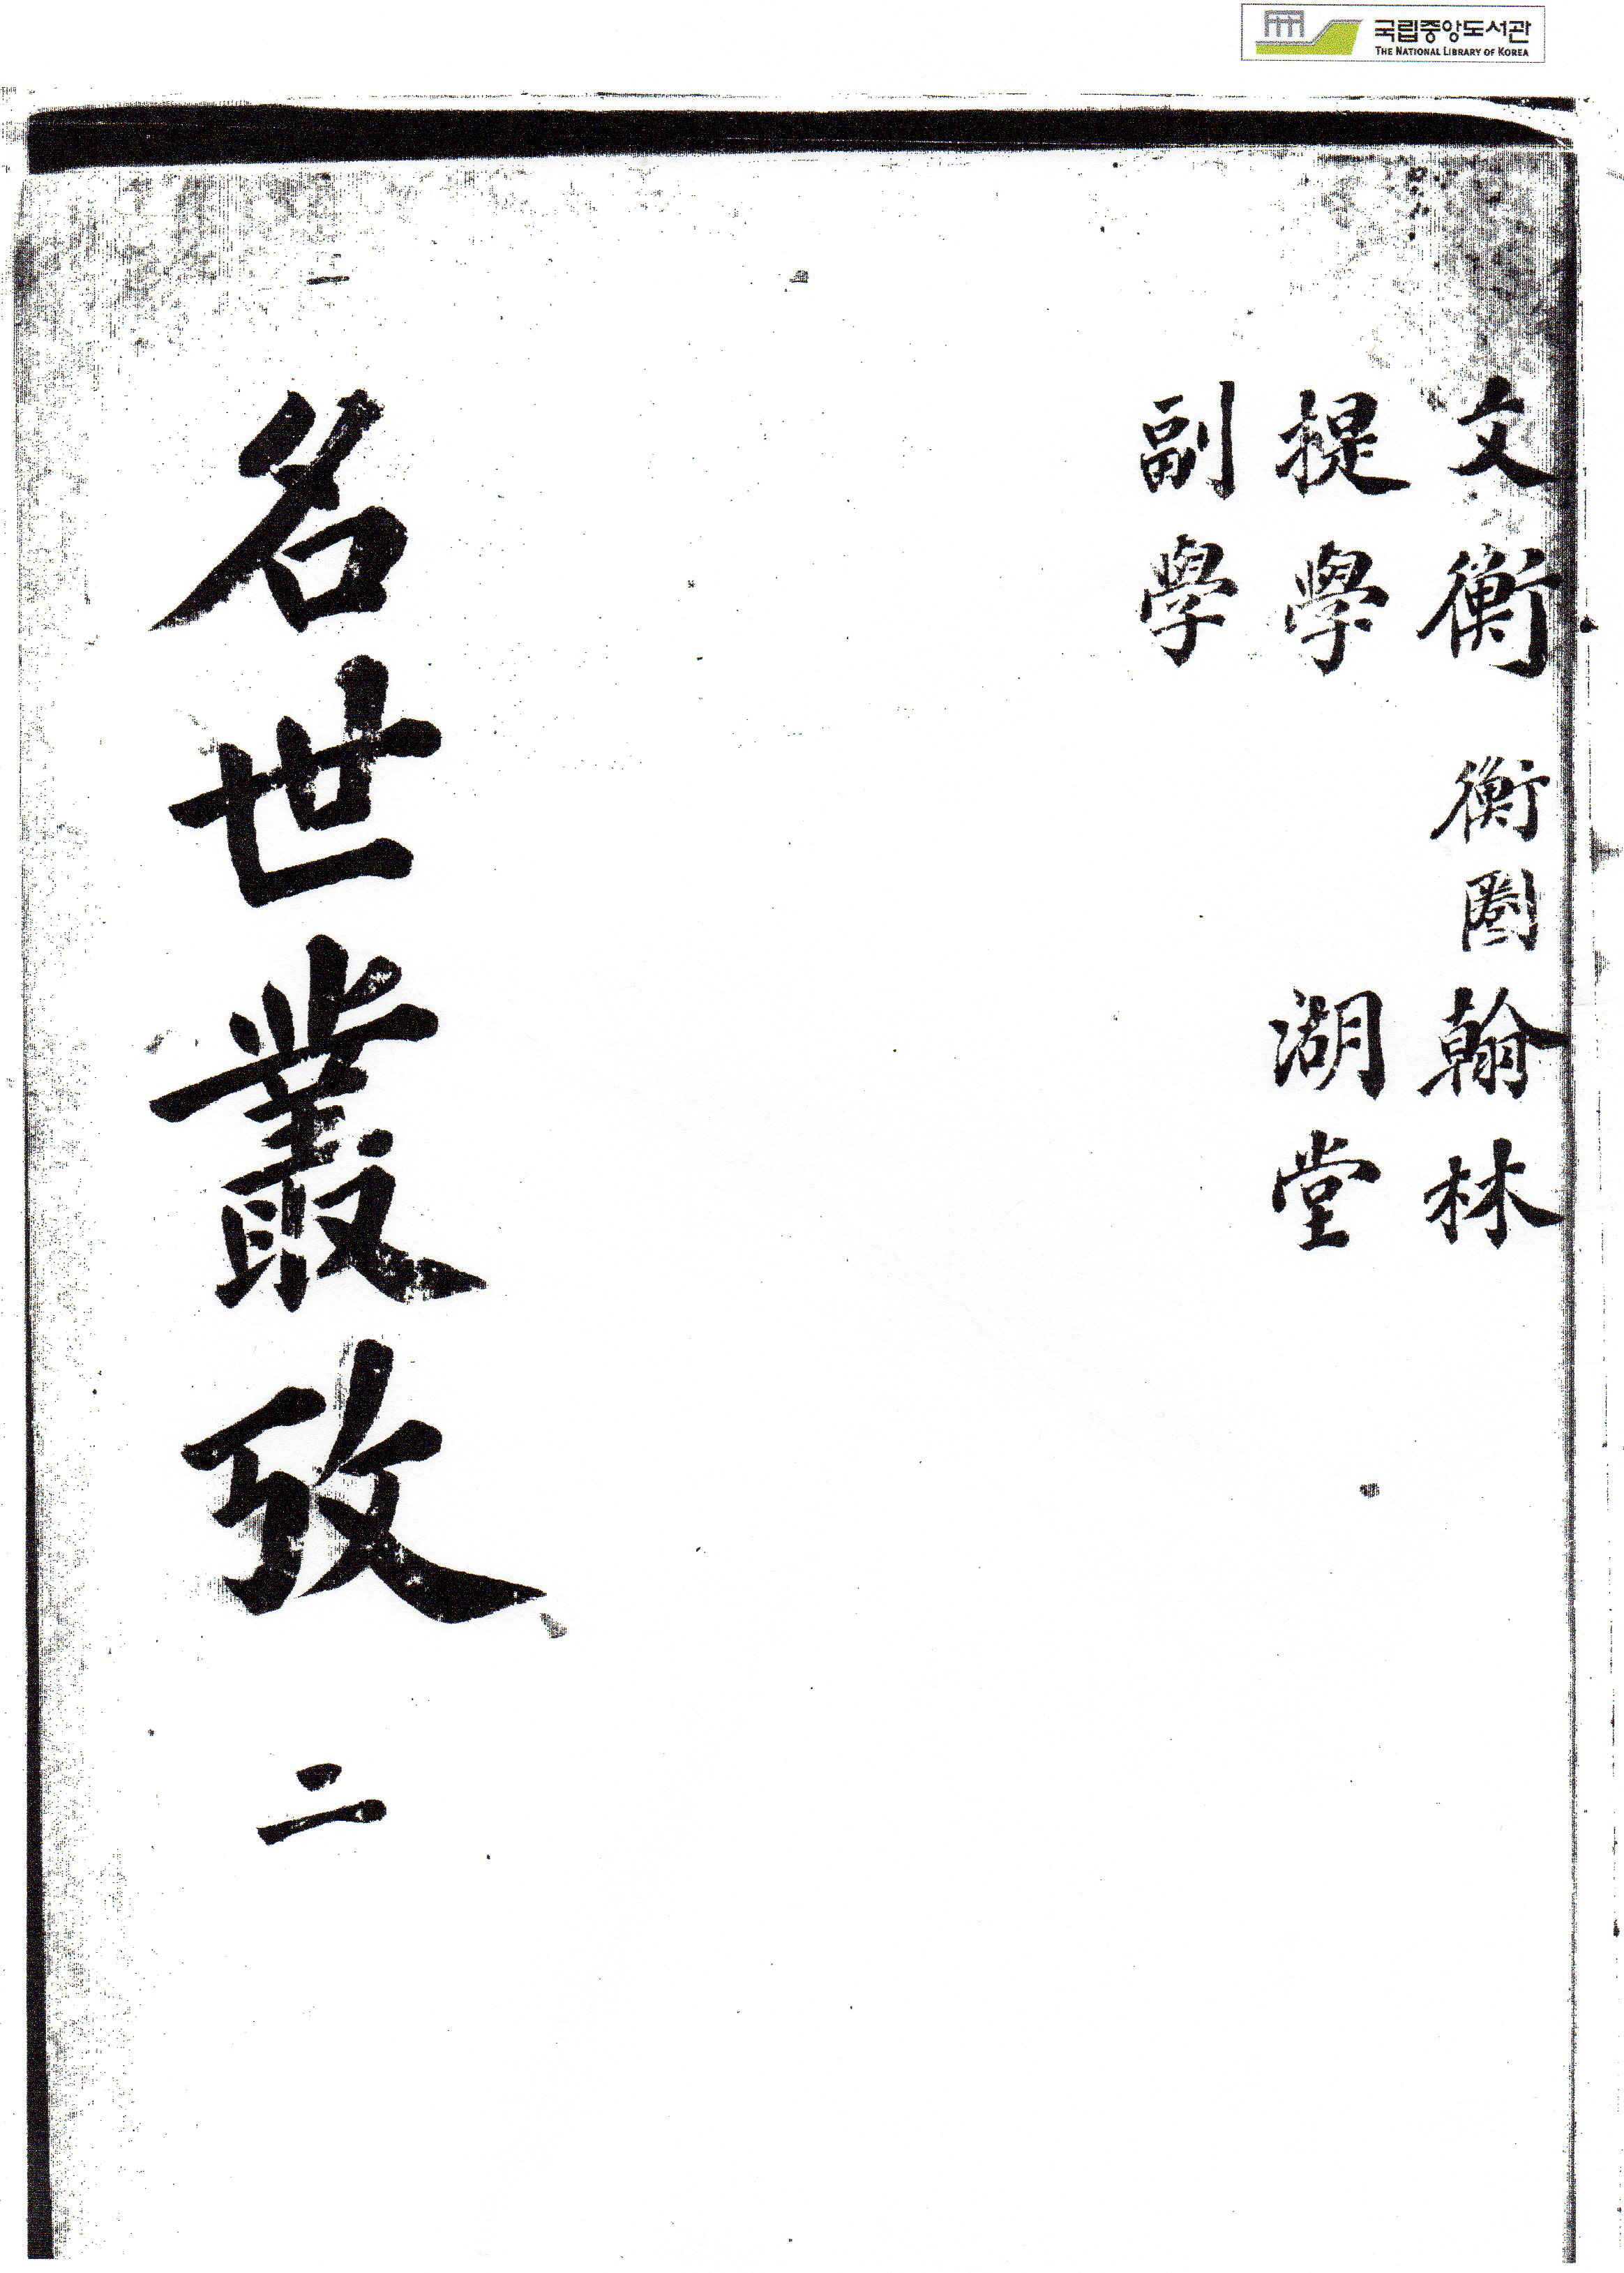 국립중앙도서관
THE NATIONAL LIBRARY OF KOREA
文衡 衡圈 翰林
提學 湖堂
副學
名世叢攷 二